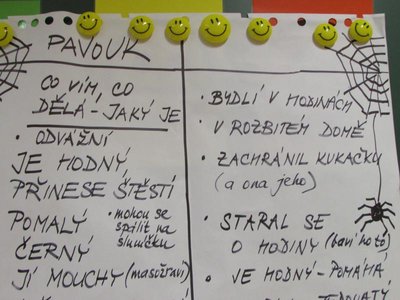 PAVOUK
CO VÍM, CO
DĚLÁ - JAKÝ JE
• ODVÁŽNÍ
JE HODNÝ,
PŘINESE ŠTĚSTÍ
POMALÝ
• mohou se
spálit na
sluníčku
ČERNÝ
JÍ MOUCHY (masožraví)
• BYDLÍ V HODINÁCH
V ROZBITÉM DOMĚ
• ZACHRÁNIL KUKAČKU
(a ona jeho)
• STARAL SE
O HODINY (baví ho to)
• VE HODNÝ - POMÁHÁ
JEDOVATÝ